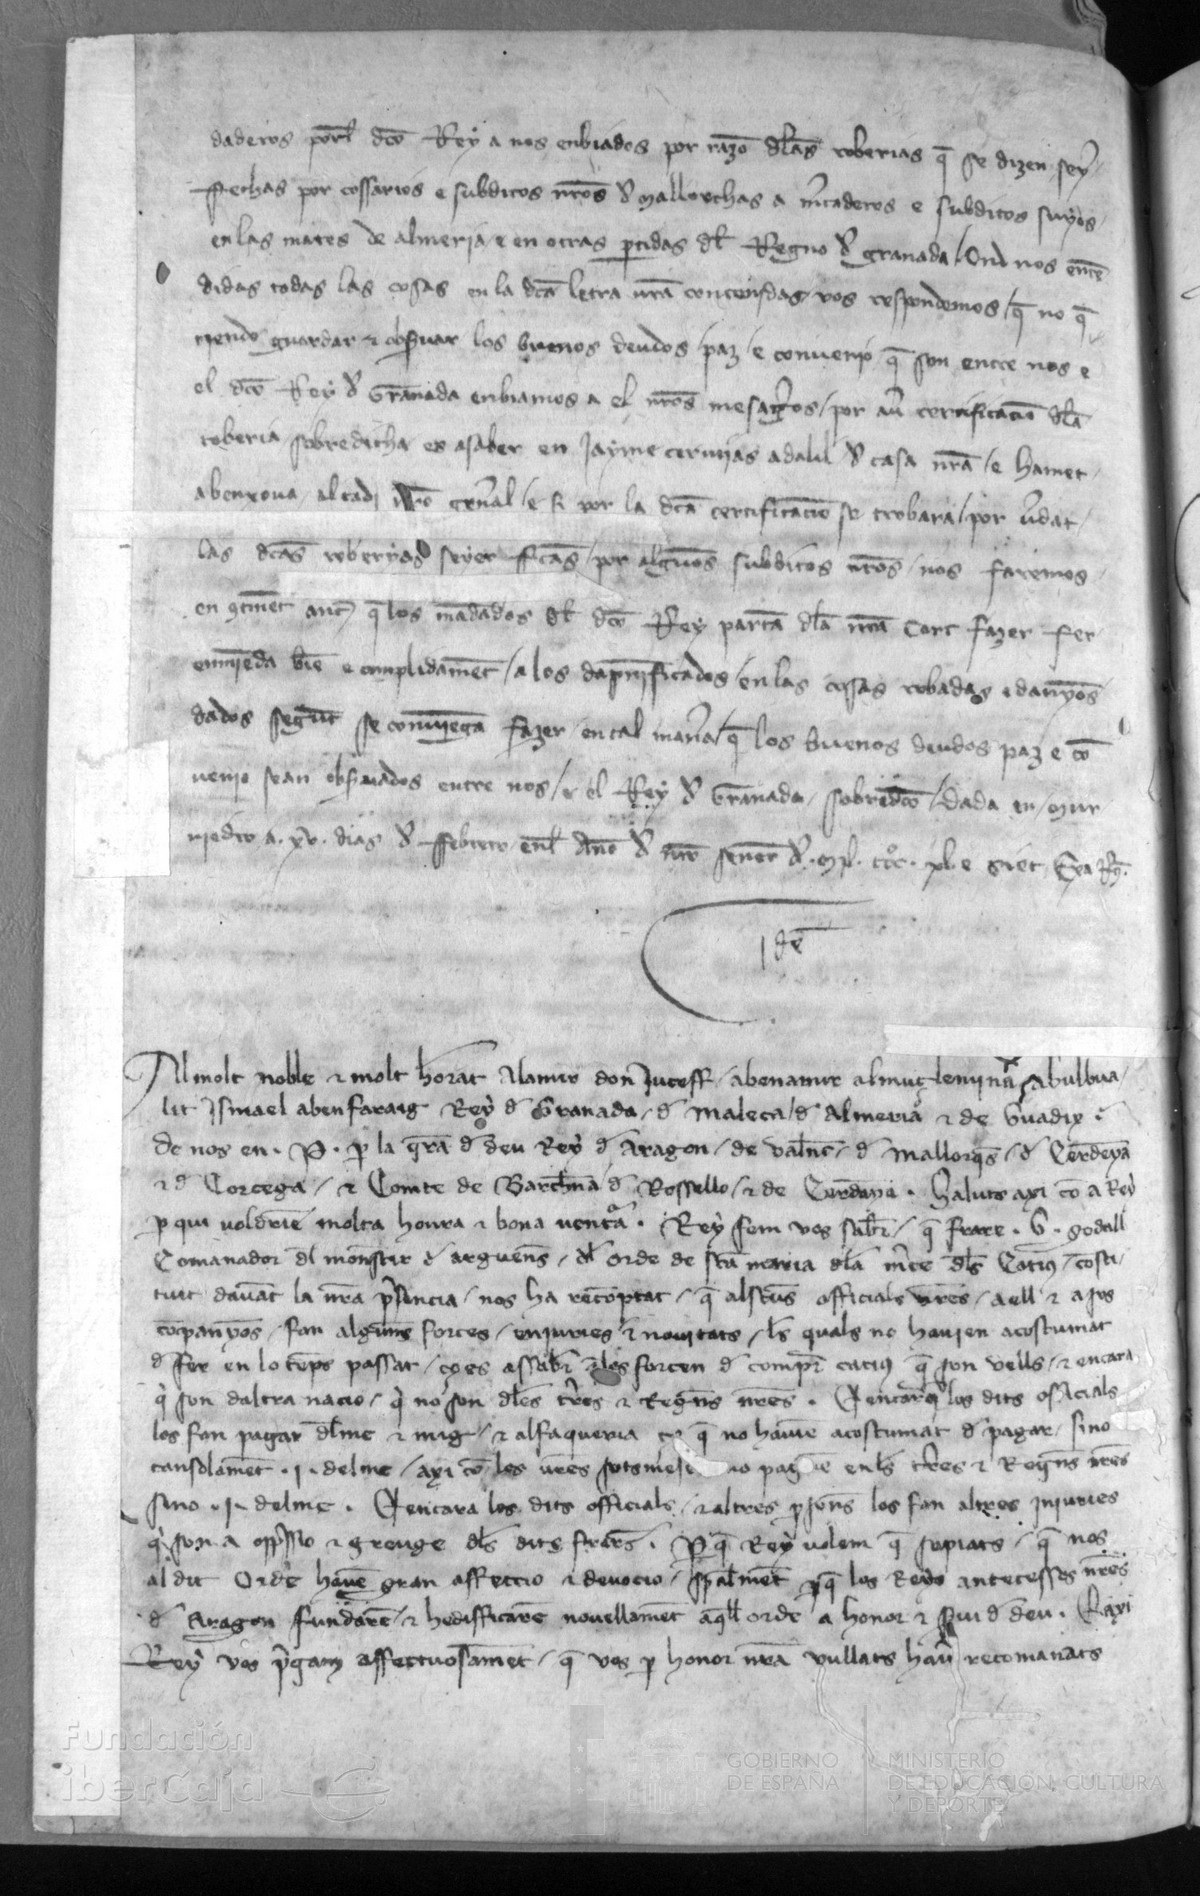 daderos porel dco Rey a nos enbiados por razo dlas roberias q se dizen seyer
ffechas por cossarios e subditos nros d mallorchas a mcaderos e subditos suyos
en las mares de almeria / e en otras ptidas dl Regno d granada / Ond nos enten
didas todas las cosas en la dca letra vra contenidas vos respondemos / q nos q
riendo guardar & observar los buenos deudos / paz / e convenio q son entre nos e
el dco Rey d Granada enbiamos a el nros mesageros / por aver certificacio dla
roberia sobredicha es asaber en Jayme adalil d casa nra / e hamet
alcadi nro general / e si por la dca certificacio se trobara / por vdat
las dcas roberias seyer fcas / por algunos subditos nros / nos faremos
en q los mandados dl dco Rey partan dla nra Cort fazer fer
emienda bie e complidament / a los dapnificados / en las cosas robadas e danyos
dados segunt se convienga fazer / en tal mana / q los buenos deudos paz e co
venio sean observados entre nos / e el Rey d Granada sobredco / Dada en mur
viedro a xv dias d ffebrero enl Anyo d nro senyor d mil ccc xl e siet
Ide
Al molt noble & molt honrat Alamir don Juceff / abenamir almuzlemi nra Abulhua
lit Ismael abenfaraig Rey d Granada / d Maleca / d Almeria & de Guadix
de nos en P p la gra d deu Rey d Arago / de valnc / d Mallorqs / d Cerdenya
& d Corcega / & Comte de Barchna d Rossello / & de Cerdanya Saluts axi co a Rey
p qui voldrie molta honra & bona ventura Rey fem vos saber / q frare G godall
Comanador dl monstir d arguens / dl orde de sta maria dla mce dls Catius / costi
tuit davant la nra presencia / nos ha recomptat / q alscuns officials vres / a ell & a sos
copanyos / fan alguns forces / enjuries & novitats / ls quals no havien acostumat
d fer en lo teps passat / ço es assaber los forcen d compr catius q son vells / & encara
q son daltra nacio / q no son dles tres & Regns nres E encara los dits officials
los fan pagar delme & mig / & alfaqueria ço q no havie acostumat d pagar / sino
tansolament I delme / axi co les vres no pague en ls tres & Regns nres
sino I delme E encara los dits officials / & altres psons los fan altres injuries
q son a oppssio & greuge dls dits frars P q Rey volem q sapiats / q nos
al dit Orde have gran affeccio & devocio / spalment p q los Reys antecessors nres
d Arago fundare & hedifficare novellament aqll orde a honor & svi d deu E axi
Rey vos pgam affectuosament / q vos p honor nra vullats haver recomanats
Fundación
iberCaja
GOBIERNO
DE ESPAÑA
MINISTERIO
DE EDUCACIÓN, CULTURA
Y DEPORTE